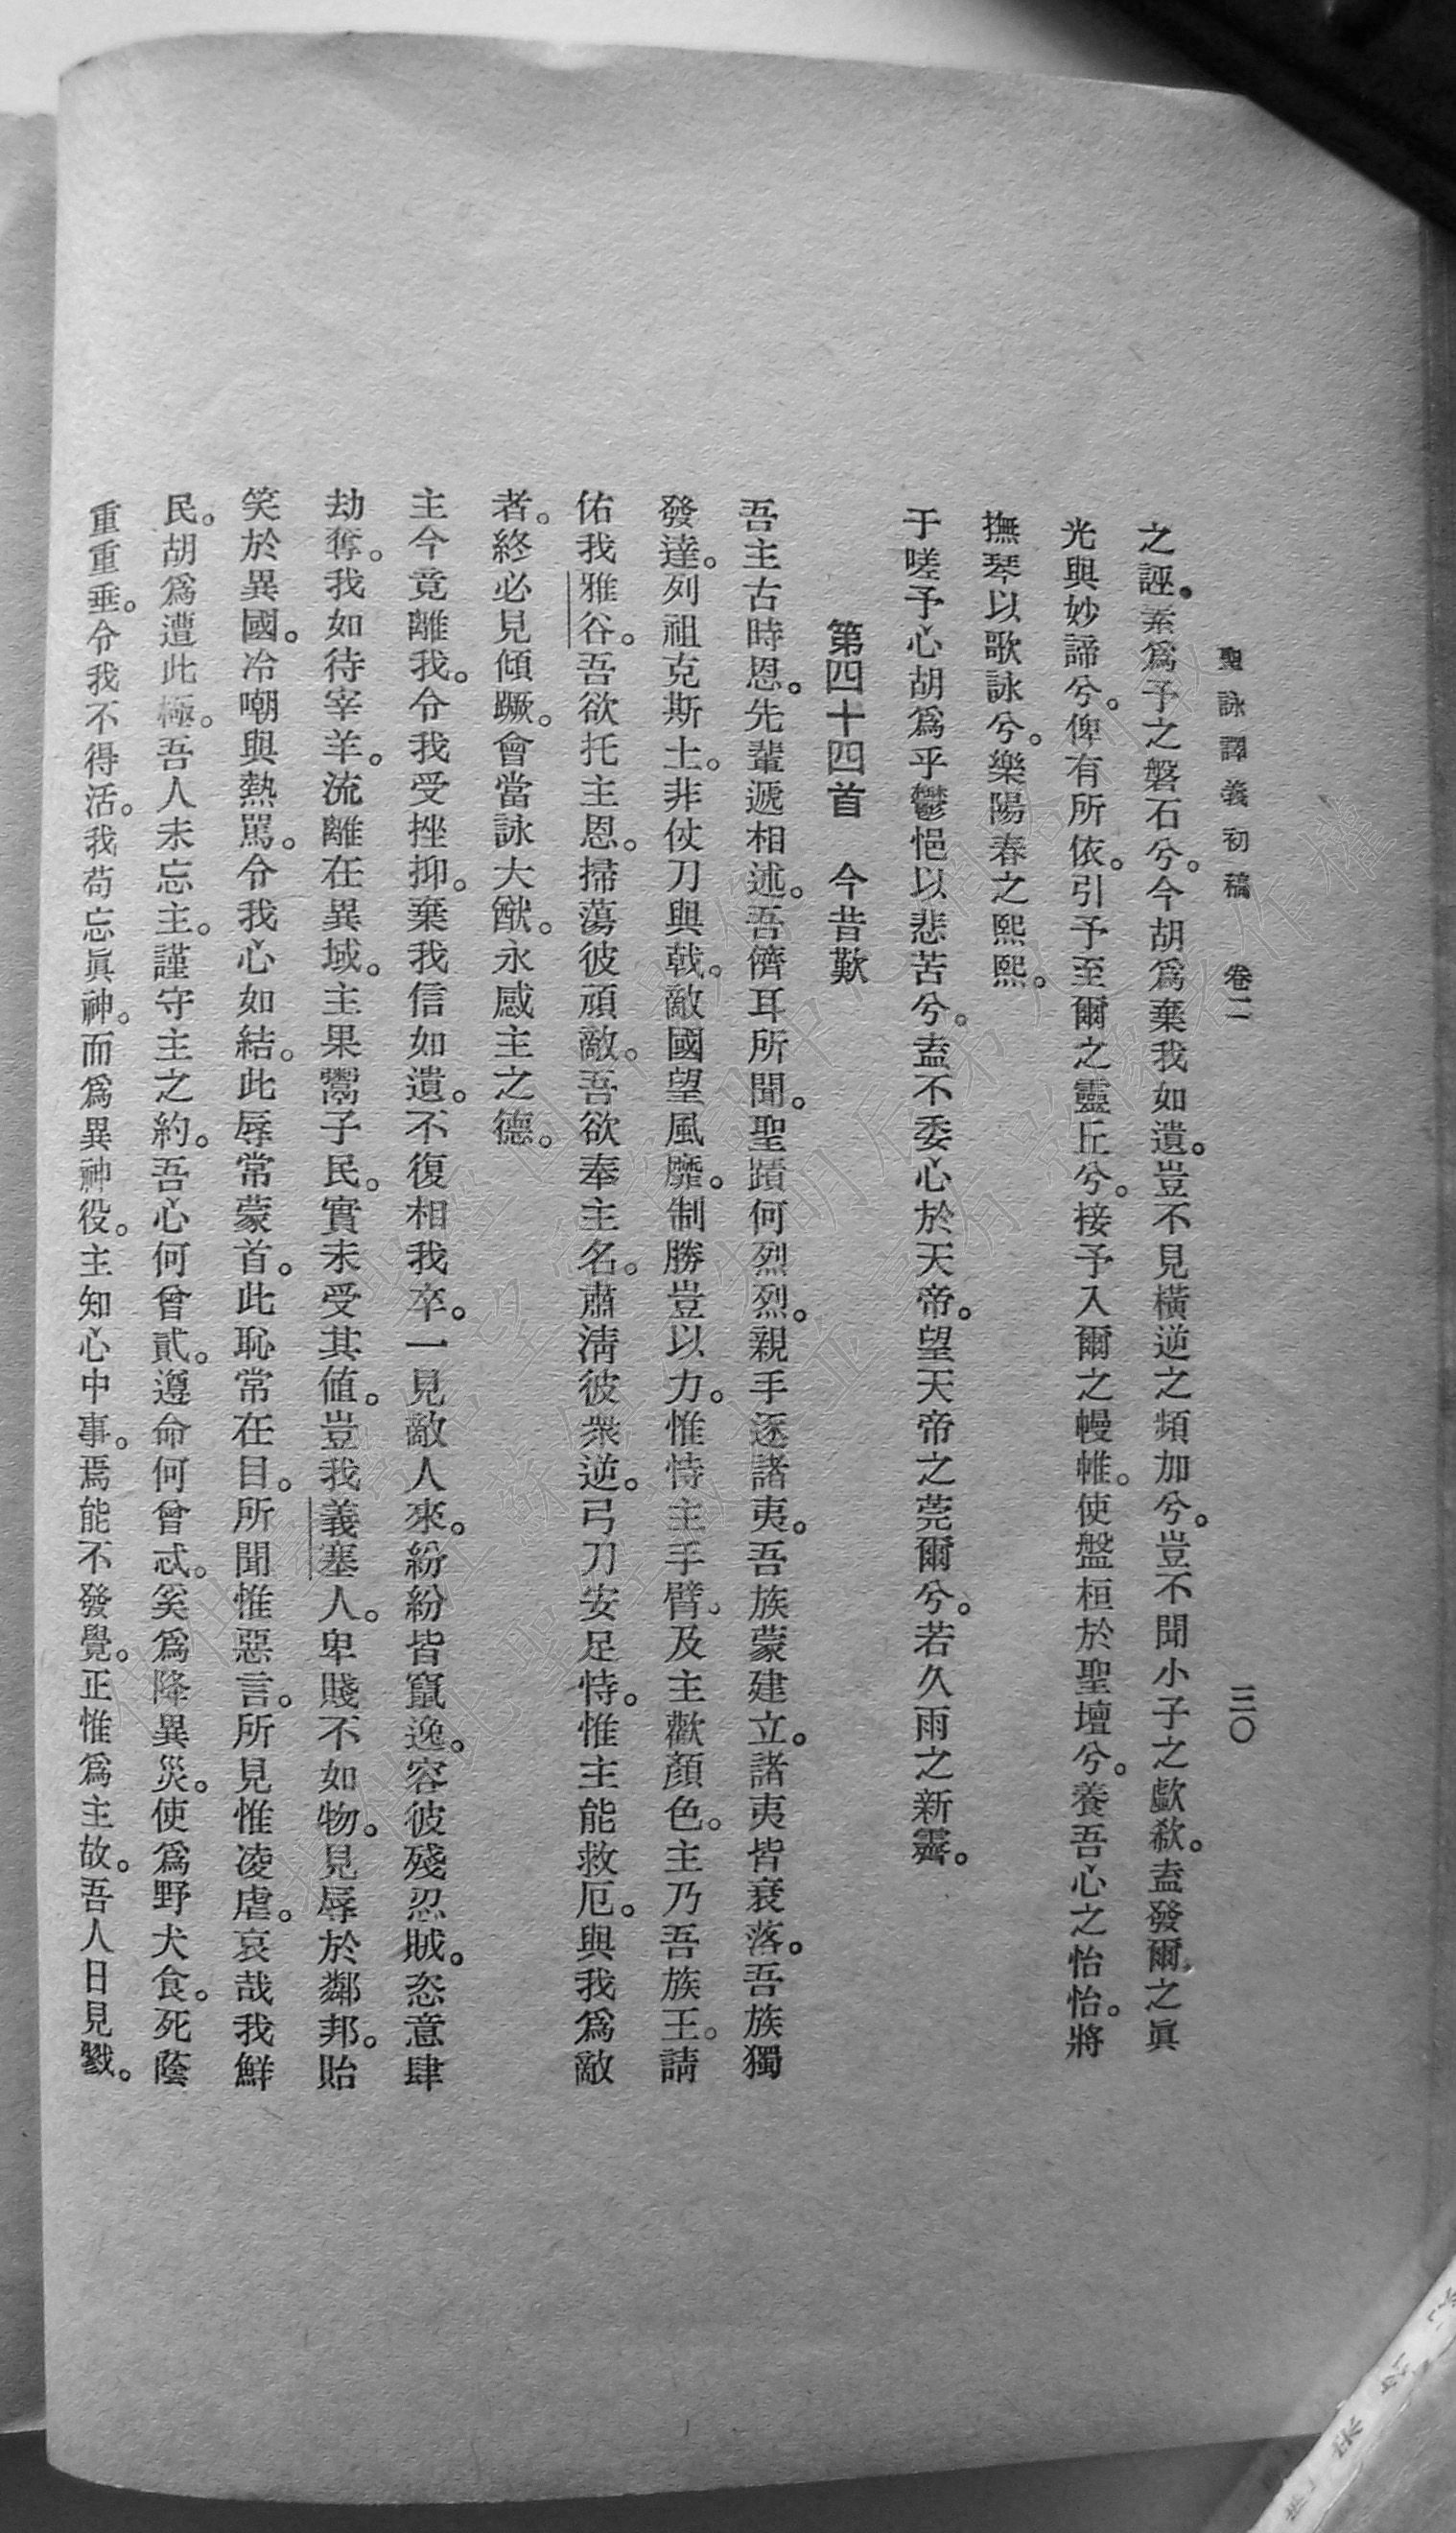 聖詠譯義初稿　卷二　三〇
之誣。素爲予之磐石兮。今胡爲棄我如遺。豈不見橫逆之頻加兮。豈不聞小子之歔欷。盍發爾之眞
光與妙諦兮。俾有所依。引予至爾之靈丘兮。接予入爾之幔帷。使盤桓於聖壇兮。養吾心之怡怡。將
撫琴以歌詠兮。樂陽春之熙熙。
于嗟予心胡爲乎鬱悒以悲苦兮。盍不委心於天帝。望天帝之莞爾兮。若久雨之新霽。
第四十四首　今昔歎
吾主古時恩。先輩遞相述。吾儕耳所聞。聖蹟何烈烈。親手逐諸夷。吾族蒙建立。諸夷皆衰落。吾族獨
發達。列祖克斯土。非仗刀與戟。敵國望風靡。制勝豈以力。惟恃主手臂。及主歡顏色。主乃吾族王。請
佑我雅谷。吾欲托主恩。掃蕩彼頑敵。吾欲奉主名。肅淸彼衆逆。弓刀安足恃。惟主能救厄。與我爲敵
者。終必見傾蹶。會當詠大猷。永感主之德。
主今竟離我。令我受挫抑。棄我信如遺。不復相我卒。一見敵人來。紛紛皆竄逸。容彼殘忍賊。恣意肆
劫奪。我如待宰羊。流離在異域。主果鬻子民。實未受其値。豈我義塞人。卑賤不如物。見辱於鄰邦。貽
笑於異國。冷嘲與熱罵。令我心如結。此辱常蒙首。此恥常在目。所聞惟惡言。所見惟凌虐。哀哉我鮮
民。胡爲遭此極。吾人未忘主。謹守主之約。吾心何曾貳。遵命何曾忒。奚爲降異災。使爲野犬食。死蔭
重重垂。令我不得活。我苟忘眞神。而爲異神役。主知心中事。焉能不發覺。正惟爲主故。吾人日見戮。